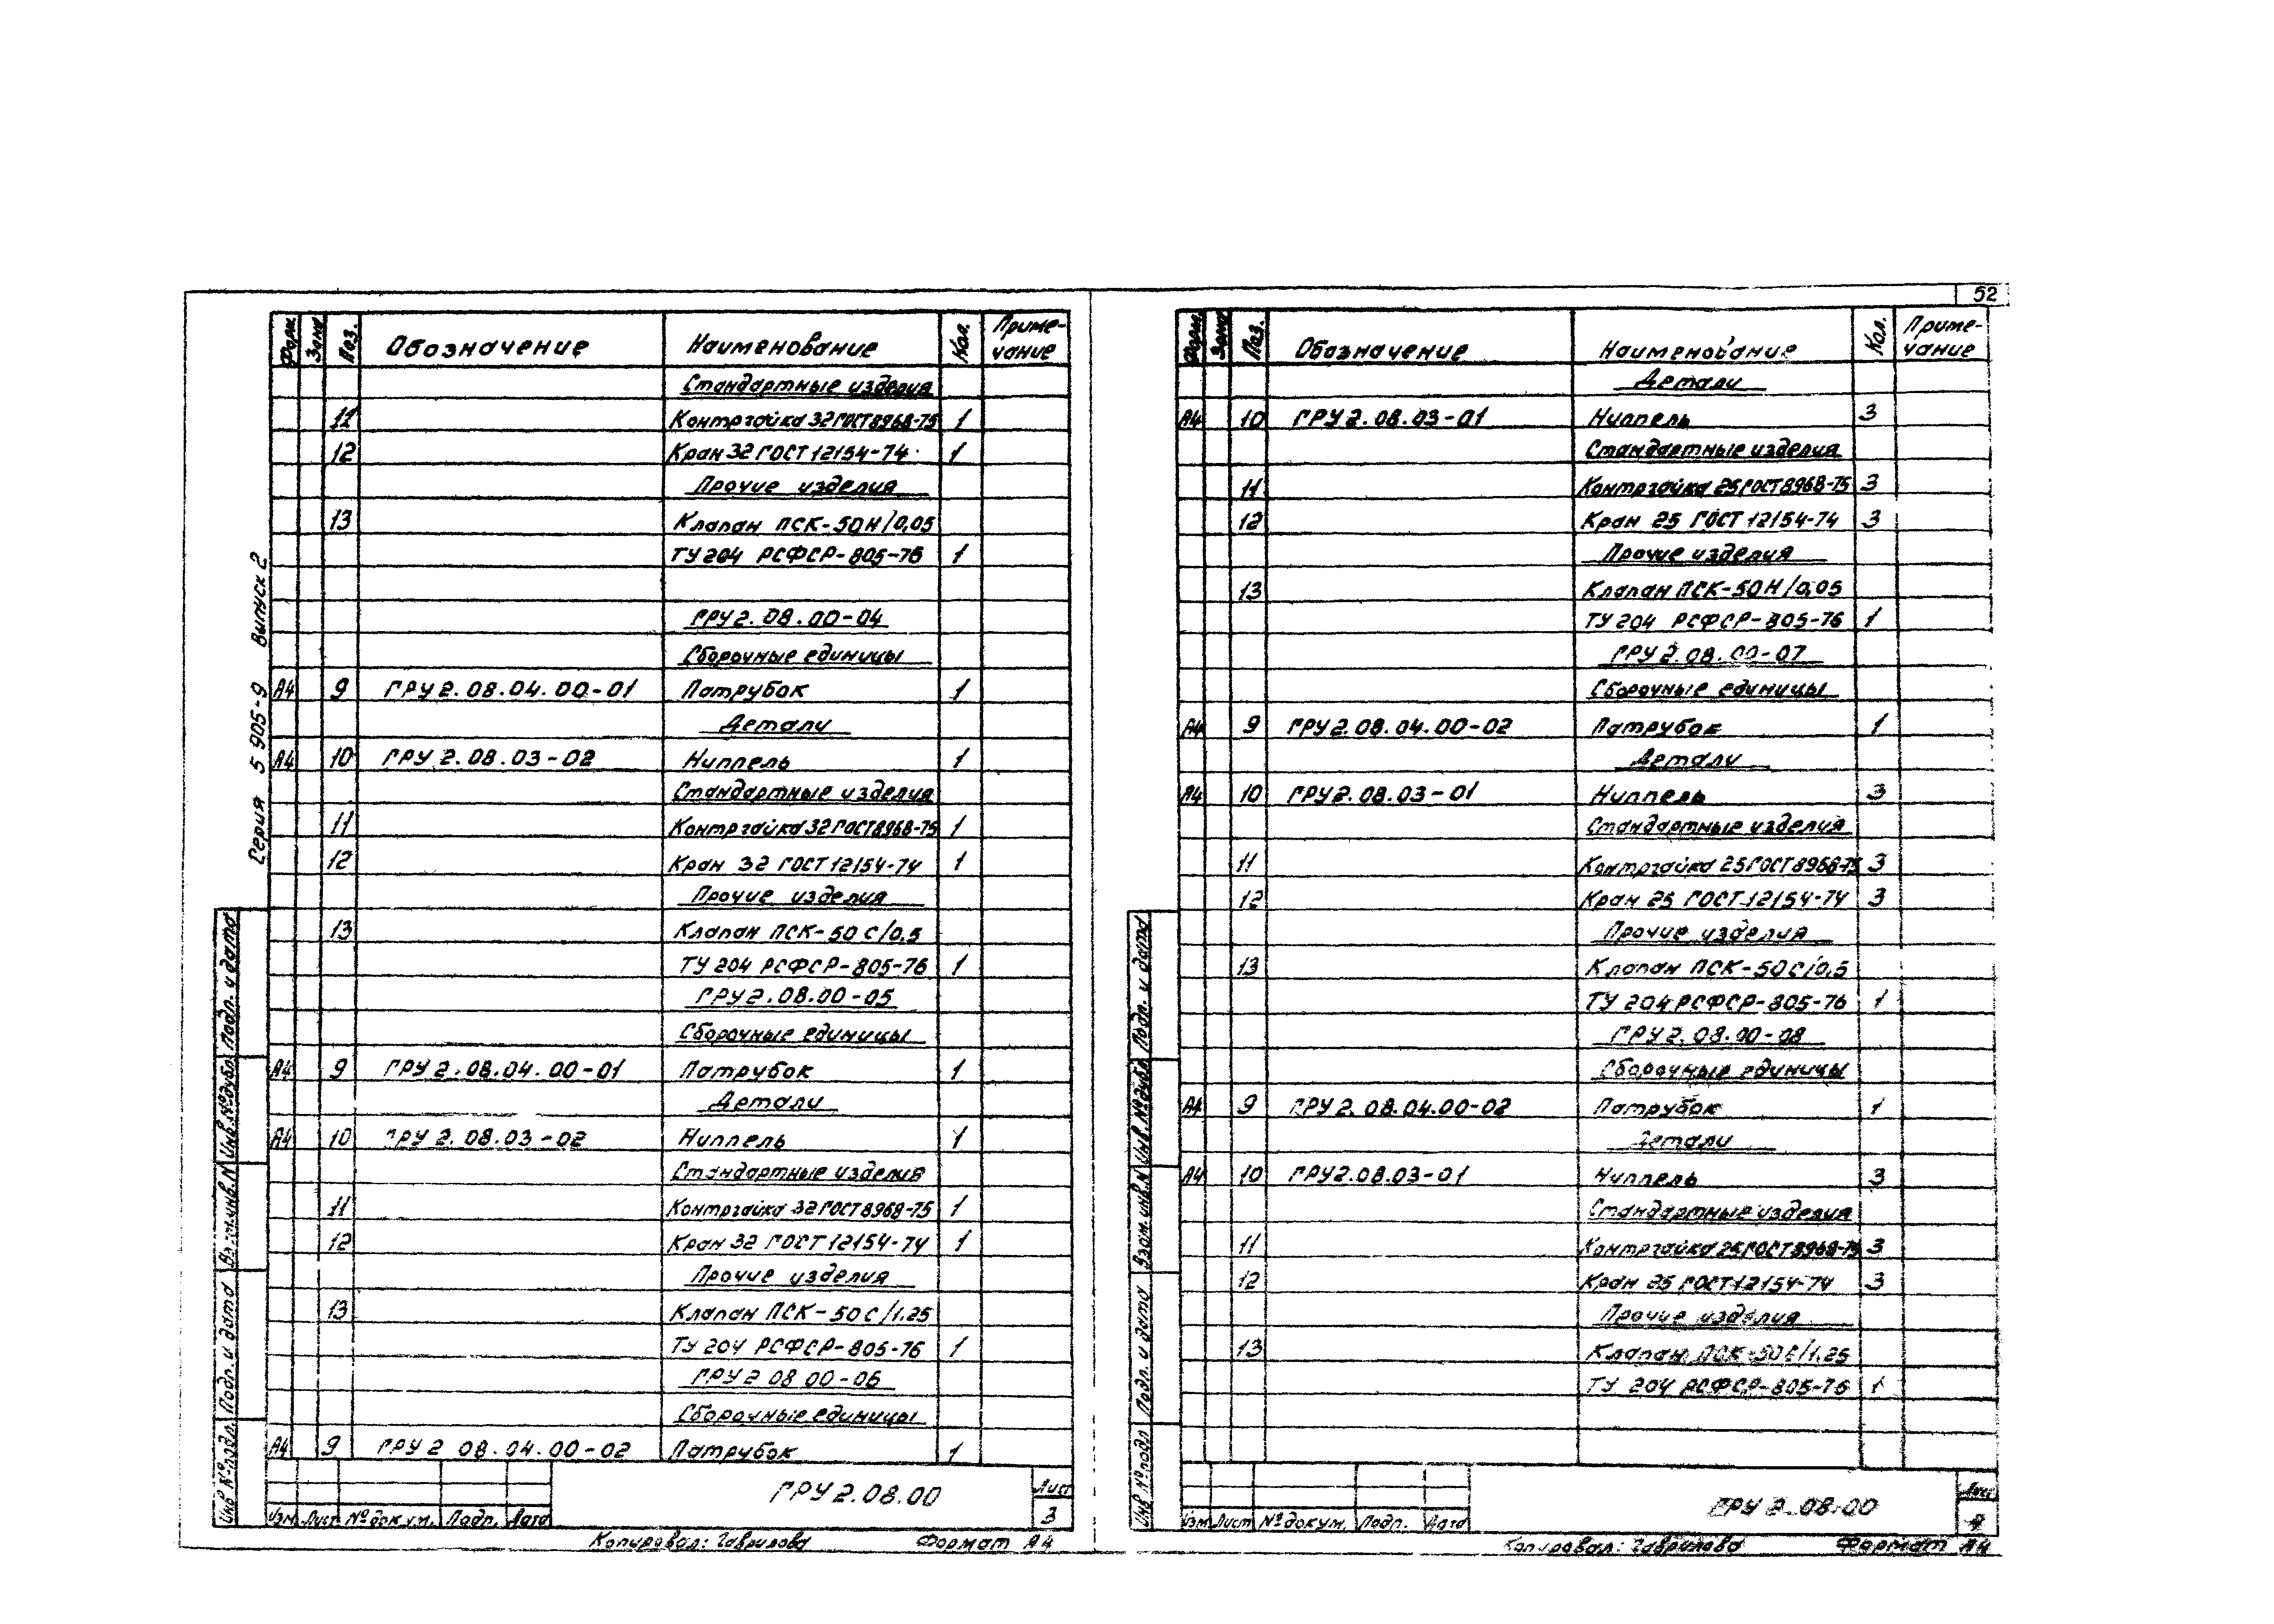 52
Серия 5 905-9 Выпуск 2
Форм. Зона Поз. Обозначение Наименование Кол. Приме-
чание
Стандартные изделия
11 Контргайка 32 ГОСТ 8968-75 1
12 Кран 32 ГОСТ 12154-74 1
Прочие изделия
13 Клапан ПСК-50Н/0,05
ТУ 204 РСФСР-805-76 1
ГРУ 2.08.00-04
Сборочные единицы
А4 9 ГРУ 2.08.04.00-01 Патрубок 1
Детали
А4 10 ГРУ 2.08.03-02 Ниппель 1
Стандартные изделия
11 Контргайка 32 ГОСТ 8968-75 1
12 Кран 32 ГОСТ 12154-74 1
Прочие изделия
13 Клапан ПСК-50С/0,5
ТУ 204 РСФСР-805-76 1
ГРУ 2.08.00-05
Сборочные единицы
А4 9 ГРУ 2.08.04.00-01 Патрубок 1
Детали
А4 10 ГРУ 2.08.03-02 Ниппель 1
Стандартные изделия
11 Контргайка 32 ГОСТ 8968-75 1
12 Кран 32 ГОСТ 12154-74 1
Прочие изделия
13 Клапан ПСК-50С/1.25
ТУ 204 РСФСР-805-76 1
ГРУ 2 08 00-06
Сборочные единицы
А4 9 ГРУ 2 08.04.00-02 Патрубок 1
Инв № подл. Подп. и дата Взам. инв. № Инв. № дубл. Подп. и дата
ГРУ 2.08.00
Лист
3
Изм Лист № докум. Подп. Дата
Копировал: Гаврилова Формат А4
Форм. Зона Поз. Обозначение Наименование Кол. Приме-
чание
Детали
А4 10 ГРУ 2.08.03-01 Ниппель 3
Стандартные изделия
11 Контргайка 25 ГОСТ 8968-75 3
12 Кран 25 ГОСТ 12154-74 3
Прочие изделия
13 Клапан ПСК-50Н/0,05
ТУ 204 РСФСР-805-76 1
ГРУ 2.08.00-07
Сборочные единицы
А4 9 ГРУ 2.08.04.00-02 Патрубок 1
Детали
А4 10 ГРУ 2.08.03-01 Ниппель 3
Стандартные изделия
11 Контргайка 25 ГОСТ 8968-75 3
12 Кран 25 ГОСТ 12154-74 3
Прочие изделия
13 Клапан ПСК-50С/0,5
ТУ 204 РСФСР-805-76 1
ГРУ 2.08.00-08
Сборочные единицы
А4 9 ГРУ 2.08.04.00-02 Патрубок 1
Детали
А4 10 ГРУ 2.08.03-01 Ниппель 3
Стандартные изделия
11 Контргайка 25 ГОСТ 8968-75 3
12 Кран 25 ГОСТ 12154-74 3
Прочие изделия
13 Клапан ПСК-50С/1.25
ТУ 204 РСФСР-805-76 1
Инв № подл Подп. и дата Взам. инв. № Инв. № дубл. Подп. и дата
ГРУ 2.08.00
Лист
4
Изм Лист № докум. Подп. Дата
Копировал: Гаврилова Формат А4